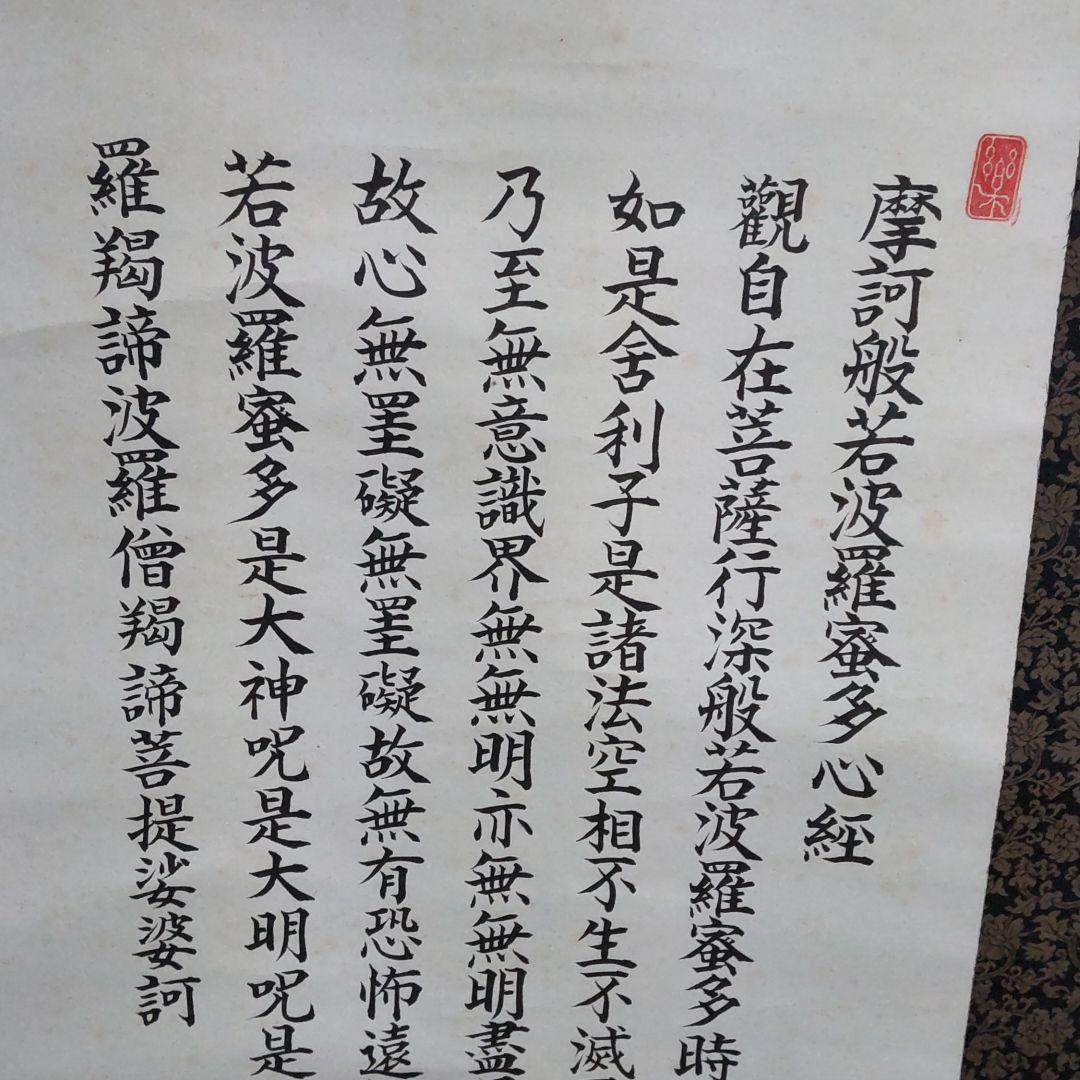 樂
摩訶般若波羅蜜多心經
觀自在菩薩行深般若波羅蜜多時
如是舍利子是諸法空相不生不滅
乃至無意識界無無明亦無無明盡
故心無罣礙無罣礙故無有恐怖遠
若波羅蜜多是大神呪是大明呪是
羅羯諦波羅僧羯諦菩提娑婆訶